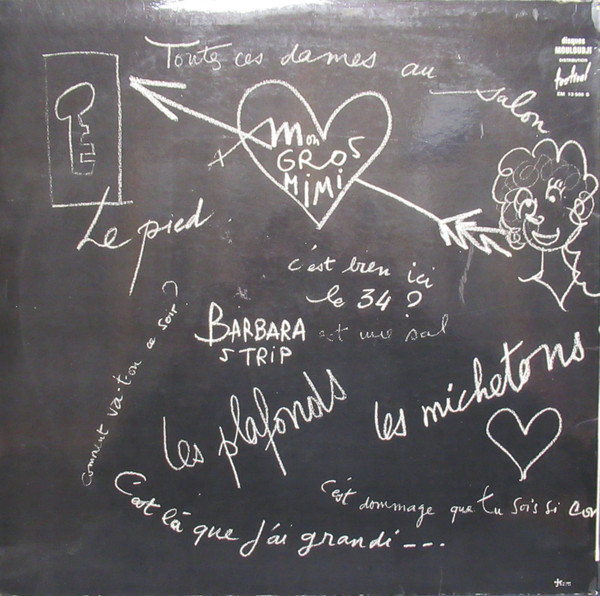 disques
MOULOUDJI
DISTRIBUTION
festival
Toutes ces dames au salon
Mon
GROS
MIMI
Le pied
c'est bien ici
le 34 ?
BARBARA est une sal
STRIP
Comment va-t-on ce soir ?
les plafonds
les michetons
C'est là que j'ai grandi ---
c'est dommage que tu sois si con